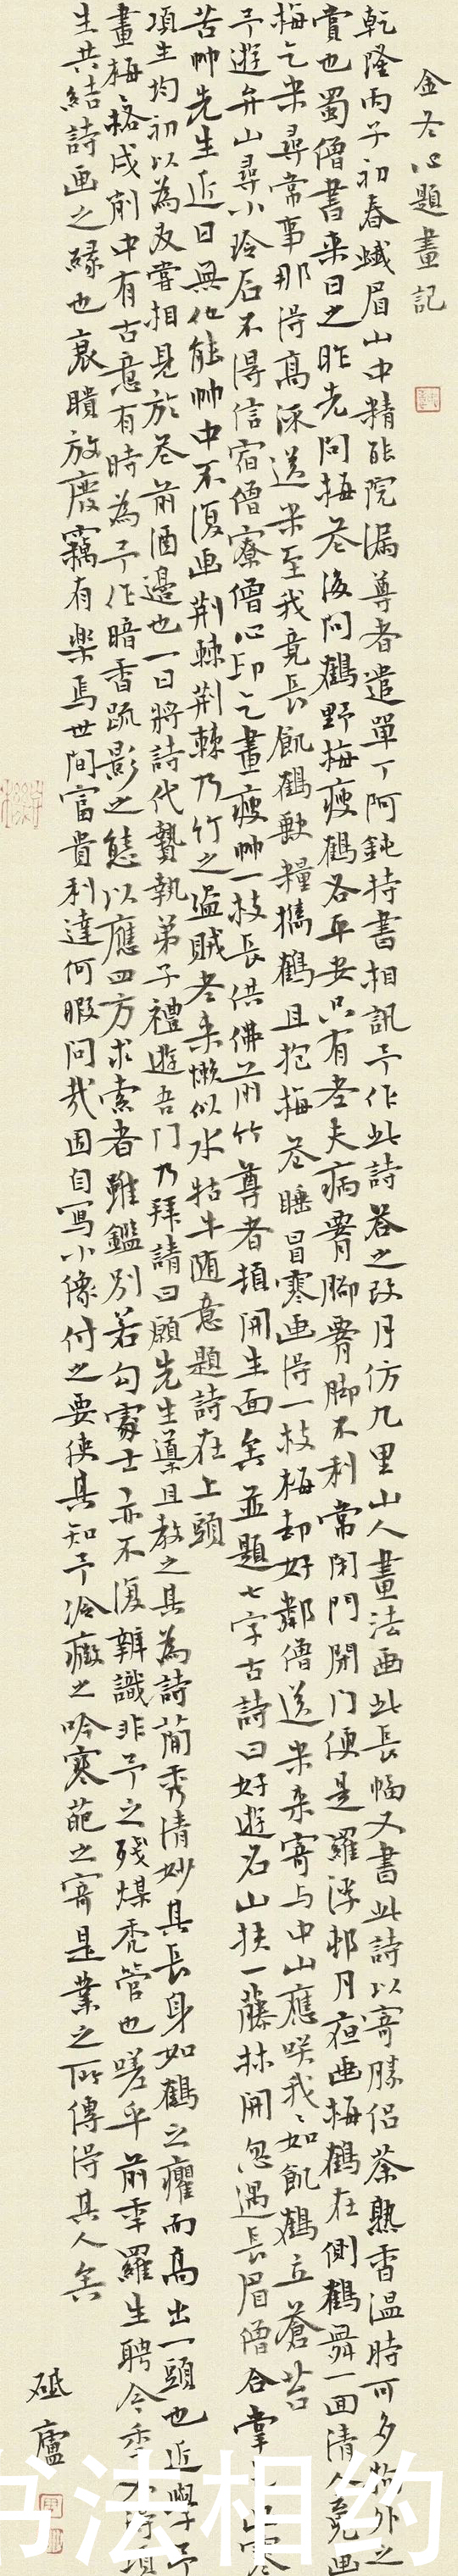 金冬心題畫記
乾隆丙子初春蛾眉山中精能院漏尊者遣單丁阿鈍持書相訊予作此詩答之改月仿九里山人畫法画此長幅又書此詩以寄勝侣茶熟香温時可多物外之
賞也蜀僧書来日之昨先問梅花後問鶴野梅瘦鶴各平安只有老夫病臂脚臂脚不利常閉門開门便是羅浮邨月夜画梅鶴在側鶴舞一回清人竟画
梅乞米尋常事那得高流送米至我竟長飢鶴缺糧攜鶴且抱梅花睡冒寒画得一枝梅却好鄰僧送米来寄与中山應咲我我如飢鶴立蒼苔
予遊弁山尋小玲石不得信宿僧寮僧心印乞畫瘦帅一枝長供佛前竹尊者頓開生面矣並題七字古詩曰好遊名山扶一藤林開忽遇長眉僧合掌乞
苦帅先生近日無他能帅中不復画荆棘荆棘乃竹之盗賊老来懶似水牯牛随意題詩在上頭
項生均初以為友嘗相見於花前酒邊也一日將詩代贄執弟子禮遊吾门乃拜請曰願先生導且教之其為詩簡秀清妙其長身如鶴之癯而高出一頭也近學予
畫梅格戍削中有古意有時為予作暗香疏影之態以應四方求索者雖鑑别若勾處士亦不復辨識非予之残煤秃管也嗟乎前年羅生聘今年
生共結詩画之緣也衰聵放廢竊有樂焉世間富貴利達何暇問哉因自寫小像付之要使其知予冷癥之吟寒葩之寄是業之所傳得其人矣
砥廬
书法相约